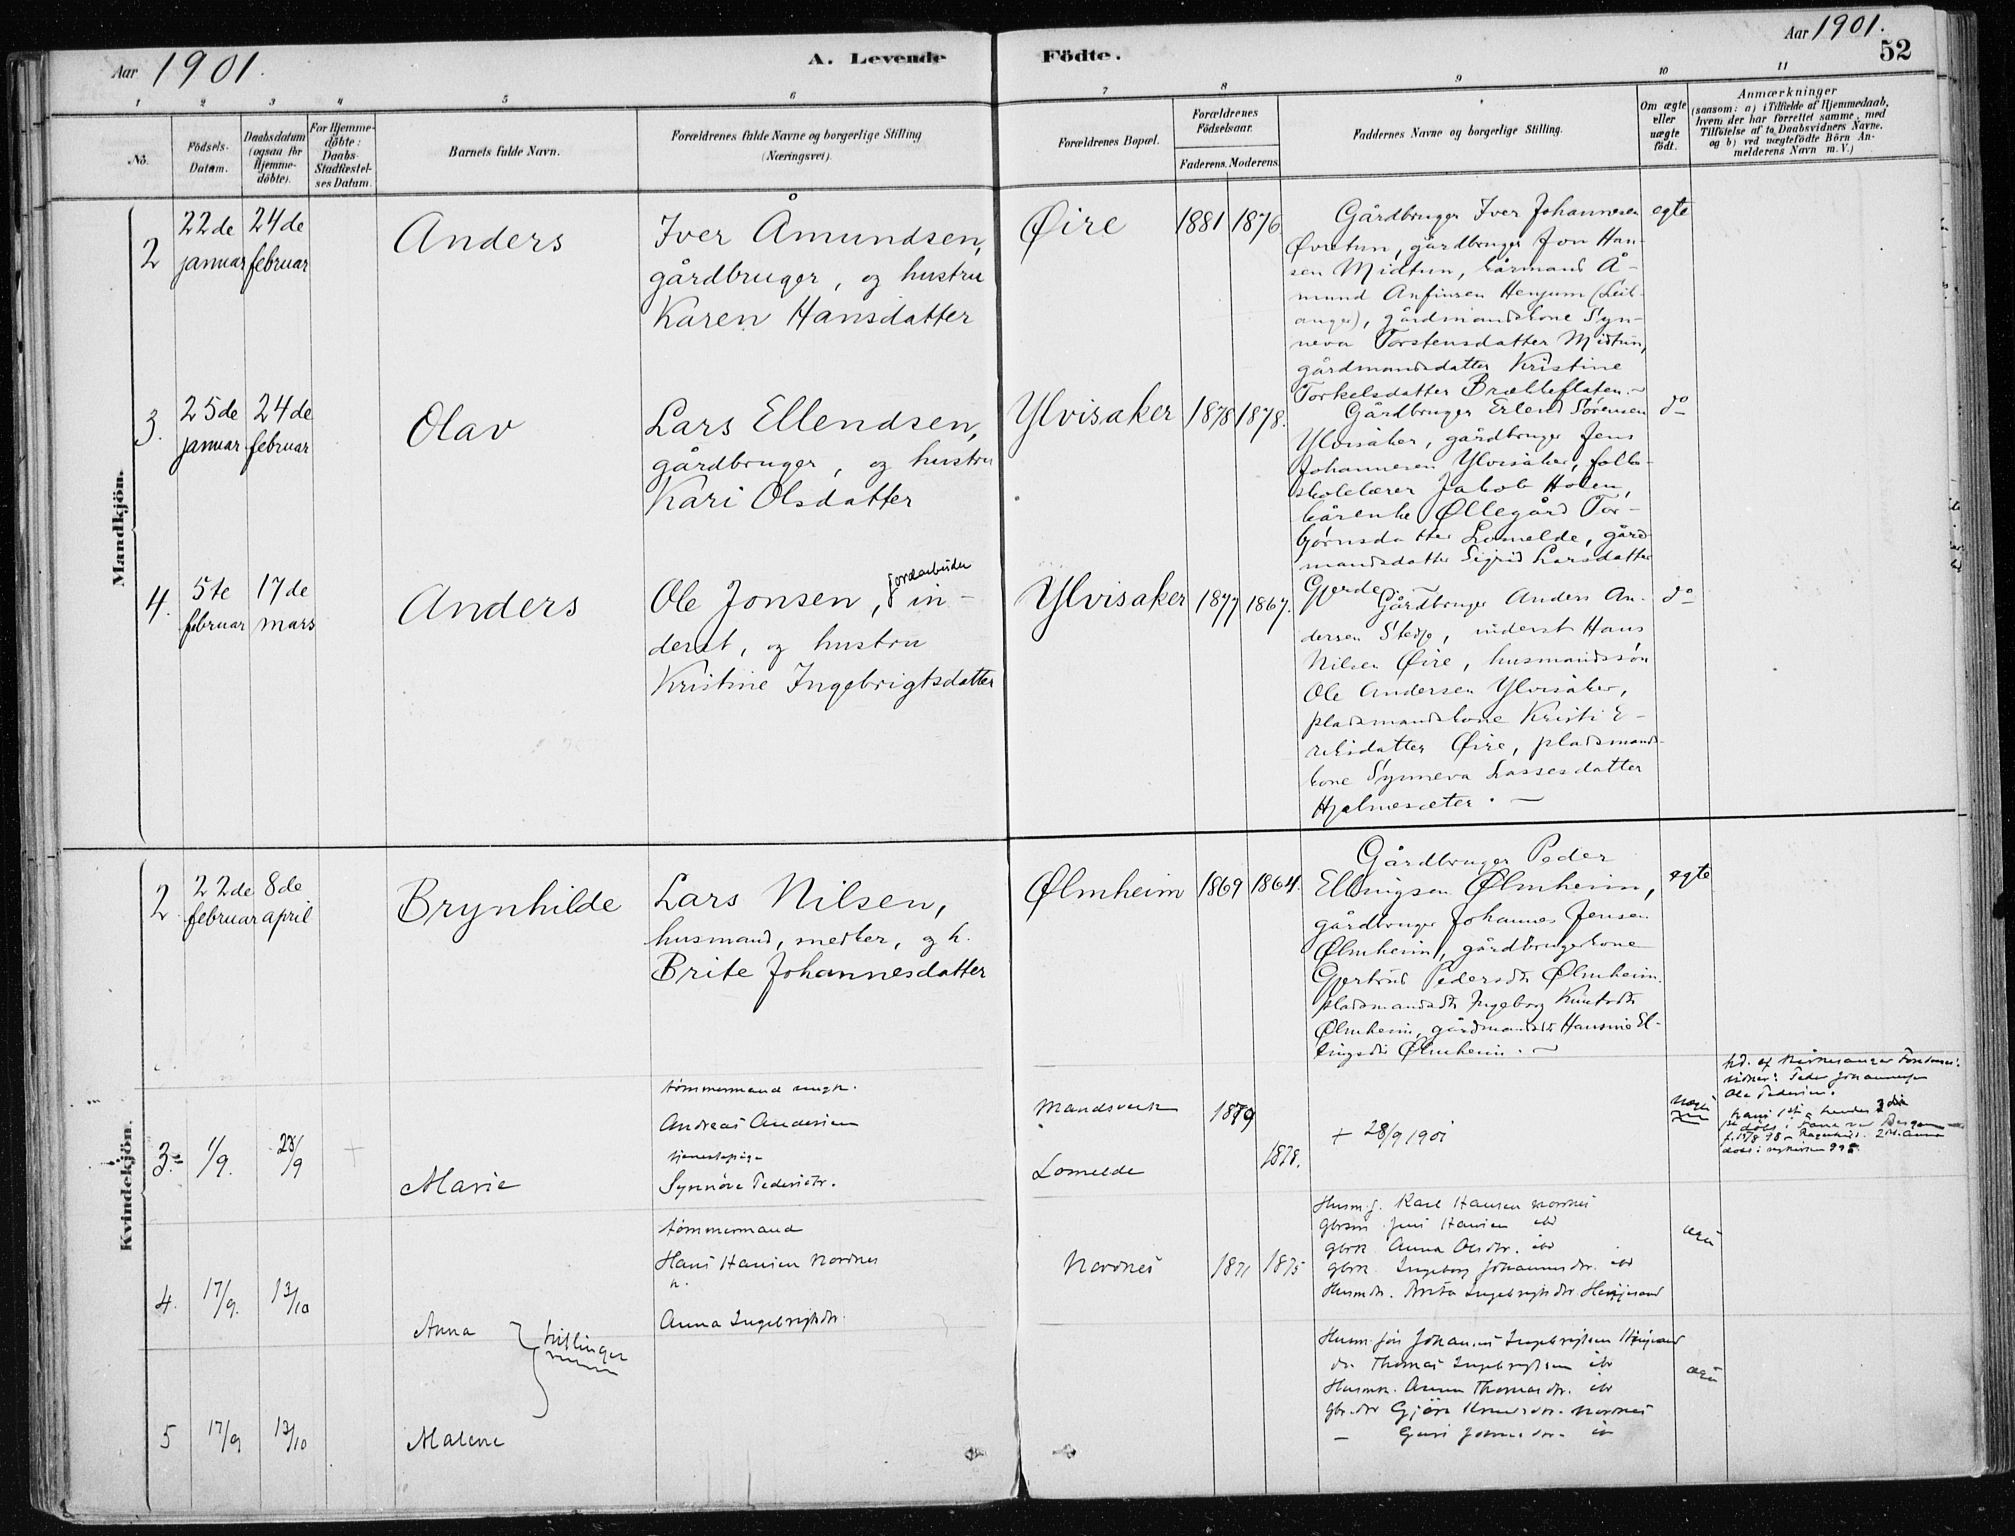 Aar 1901.
A. Levende Födte.
Aar 1901.
52
1 2 3 4 5 6 7 8 9 10 11
No.
Födsels-
Datum.
Daabsdatum
(ogsaa for
Hjemme-
döbte).
For Hjemme-
döbte:
Daabs-
Stadfæstel-
ses Datum.
Barnets fulde Navn.
Forældrenes fulde Navne og borgerlige Stilling
(Næringsvei).
Forældrenes Bopæl.
Forældrenes
Födselsaar.
Faderens. Moderens.
Faddernes Navne og borgerlige Stilling.
Om ægte
eller
uægte
født.
Anmærkninger
(saasom: a) i Tilfælde af Hjemmedaab,
hvem der har forrettet samme, med
Tilföielse af to Daabsvidners Navne,
og b) ved uægtefödte Börn An-
melderens Navn m. V.)
Mandkjön.
2
22de
januar
24de
februar
Anders
Iver Åmundsen,
gårdbruger, og hustru
Karen Hansdatter
Øire
1881 1876
Gårdbruger Iver Johannesen
Øvretun, gårdbruger Jon Han-
sen Midtun, kårmand Å-
mund Anfinsen Henjum (Leik-
anger), gårdmandskone Syn-
neva Torstensdatter Midtun,
gårdmandsdatter Kristine
Torkelsdatter Brætteflaten. -
egte
3.
25de
januar
24de
februar
Olav
Lars Ellendsen,
gårdbruger, og hustru
Kari Olsdatter
Ylvisaker
1878 1878.
Gårdbruger Erlend Sørensen
Ylvisåker, gårdbruger Jens
Johannesen Ylvisåker, folke-
skolelærer Jakob Holen,
kårenke Øllegård Tor-
bjørnsdatter Lomelde, gård-
mandsdatter Sigrid Larsdatter
Gjerde -
do
4.
5te
februar
17de
mars
Anders
Ole Jonsen, jordarbeider in-
derst, og hustru
Kristine Ingebrigtsdatter
Ylvisaker
1877 1867.
Gårdbruger Anders An-
dersen Stedje, inderst Hans
Nilsen Øire, husmandssøn
Ole Andersen Ylvisåker,
pladsmandskone Kristi E-
riksdatter Øire, pladsmands-
kone Synneva Lassesdatter
Hjelmesæter. -
do
Kvindekjön.
2
22de
februar
8de
april
Brynhilde
Lars Nilsen,
husmand, medker, og h.
Brite Johannesdatter
Ølmheim
1869 1864.
Gårdbruger Peder
Ellingsen Ølmheim,
gårdbruger Johannes Jensen
Ølmheim, gårdbrugerkone
Gjertrud Pedersdtr Ølmheim.
pladsmandsdtr Ingeborg Knutsdtr
Ølmheim, gårdmandsdtr Hansine El-
lingsdtr Ølmheim. -
egte
3.
1/9.
23/9
Marie
tømmermand ungk.
Andreas Andersen
tjenestepige
Synnöve Pedersdtr.
Mandsverk
Lomelde
1879
1878.
+ 28/9 1901
uægte
hd. af Kirkesanger
vidner: Peder Johannesen
Ole Pedersen.
4.
17/9.
13/10
Anna
tvillinger
tømmermand
Hans Hansen Nordnes
h.
Anna Ingebrigtsdtr.
Nordnes
1871 1875
Husm. f. Karl Hansen Nordnes
gbrsøn Jens Hansen ibd
gbrk. Anna Olsdtr. ibd
gbrk. Ingeborg Johannesdtr. ibd
Husmdtr. Brita Ingebrigtsdtr
ægte
5
17/9
13/10
Malene
Husm. søn Johannes Ingebrigtsen
do. Thomas Ingebrigtsen ibd
Husmk. Anna Thomasdtr. ibd
gbr.dtr Gjöri Nordnes
- Guri ibd
ægte